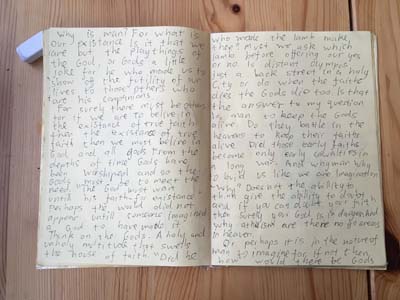 Why is man? For what is
our existance. Is it that we
are but the playthings of
the God, or Gods a little
joke for he who made us to
show of the futility of our
lives to those others who
are his companions.
For surely there must be others
for if we are to believe in
the existance of true faith
then the existance of true
faith then we must believe in
God and or gods. From the
depths of time Gods have
been worshiped and so the
Gods must to meet the
need. The God must wait
until his faithful existance.
Perhaps the world did not
appear untill someone imagined
a God to have made it.
Think on the Gods. A holy and
unholy multitude that swells
the house of faith. Did he
who made the lamb make
thee? Must we ask which
lamb before offering our yes
or no. Is distant Olympus
just a back street in a holy
City or do when the faith
dies the Gods die too. Is that
the answer to my question
is man to keep the Gods
alive. Do they battle in the
heavens to keep their faith
alive. Did those early faiths
become only early casualties in
a long war. And way man why
to build us like we are imagination
Why? Does not the ability to
think give the ability to doubt
and if you can doubt your faith
then surely your God is in danger. And
why atheism are there no go areas
in heaven.
Or perhaps it is in the nature of
man to imagine for if not then
how would there be Gods